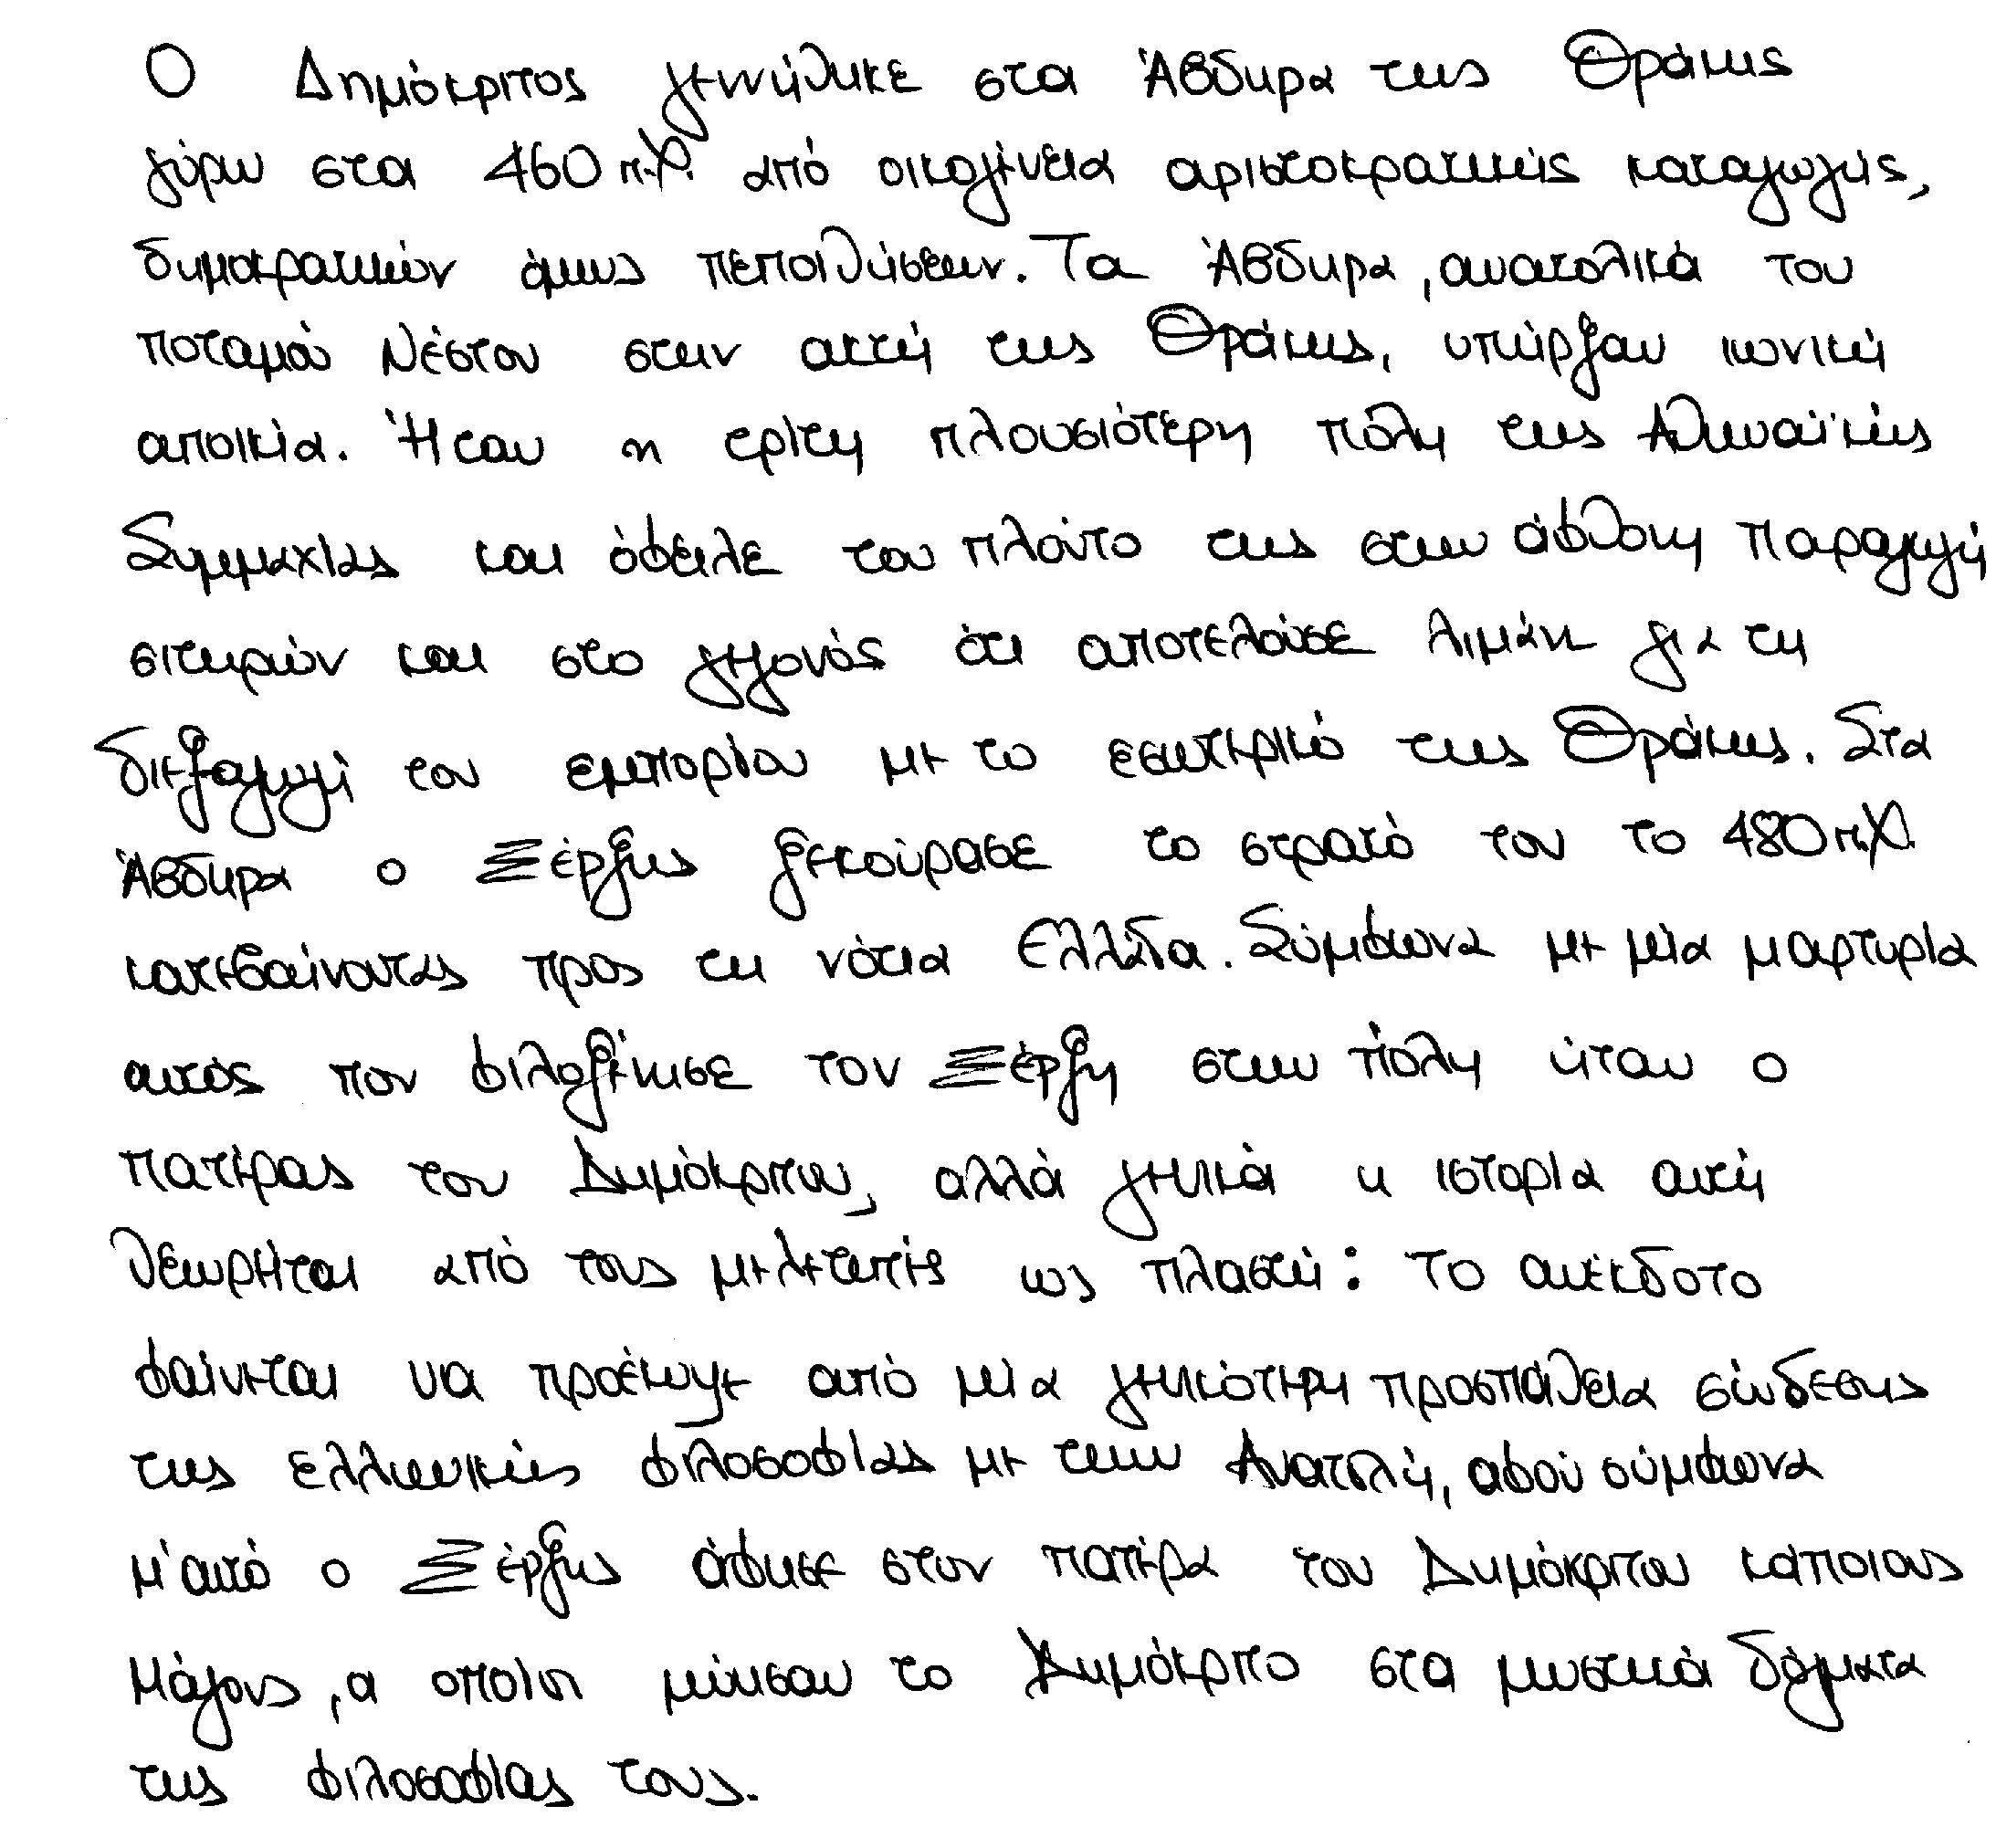 Ο Δημόκριτος γεννήθηκε στα Άβδηρα της Θράκης
γύρω στα 460 π.Χ. από οικογένεια αριστοκρατικής καταγωγής,
δημοκρατικών όμως πεποιθήσεων. Τα Άβδηρα, ανατολικά του
ποταμού Νέστου στην ακτή της Θράκης, υπήρξαν ιωνική
αποικία. Ήταν η τρίτη πλουσιότερη πόλη της Αθηναϊκής
Συμμαχίας και όφειλε τον πλούτο της στην άφθονη παραγωγή
σιτηρών και στο γεγονός ότι αποτελούσε λιμάνι για τη
διεξαγωγή του εμπορίου με το εσωτερικό της Θράκης. Στα
Άβδηρα ο Ξέρξης ξεκούρασε το στρατό του το 480 π.Χ.
κατεβαίνοντας προς τη νότια Ελλάδα. Σύμφωνα με μία μαρτυρία
αυτός που φιλοξένησε τον Ξέρξη στην πόλη ήταν ο
πατέρας του Δημόκριτου, αλλά γενικά η ιστορία αυτή
θεωρείται από τους μελετητές ως πλαστή: το ανέκδοτο
φαίνεται να προέκυψε από μία γενικότερη προσπάθεια σύνδεσης
της ελληνικής φιλοσοφίας με την Ανατολή, αφού σύμφωνα
μ' αυτό ο Ξέρξης άφησε στον πατέρα του Δημόκριτου κάποιους
Μάγους, οι οποίοι μύησαν το Δημόκριτο στα μυστικά δόγματα
της φιλοσοφίας τους.